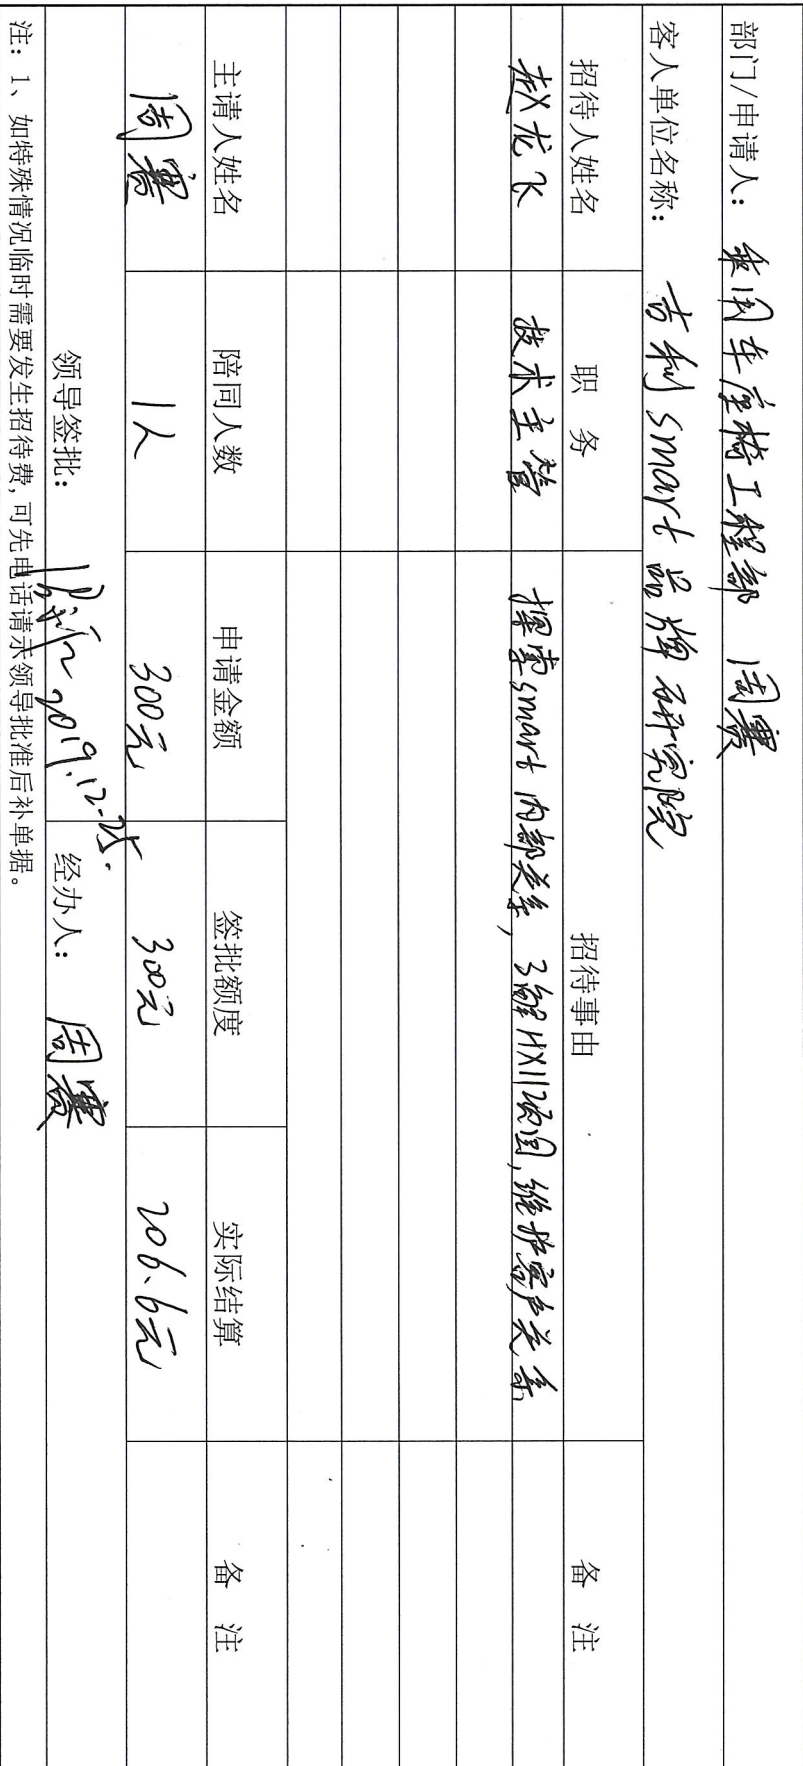 部门/申请人: 乘用车座椅工程部 周赛
客人单位名称: 吉利smart品牌研究院
招待人姓名 职 务 招待事由 备 注
赵龙飞 技术主管 探索smart内部关系,了解HX11项目,维护客户关系
主请人姓名 陪同人数 申请金额 签批额度 实际结算 备 注
周赛 1人 300元 300元 206.6元
领导签批: 2019.12.25. 经办人: 周赛
注: 1、如特殊情况临时需要发生招待费,可先电话请示领导批准后补单据。